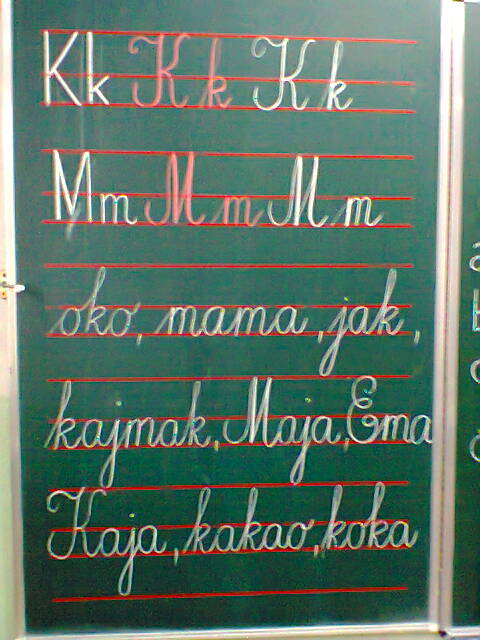 Kk Kk Kk
Mm Mm Mm
oko, mama, jak,
kajmak, Maja, Ema
Kaja, kakao, koka